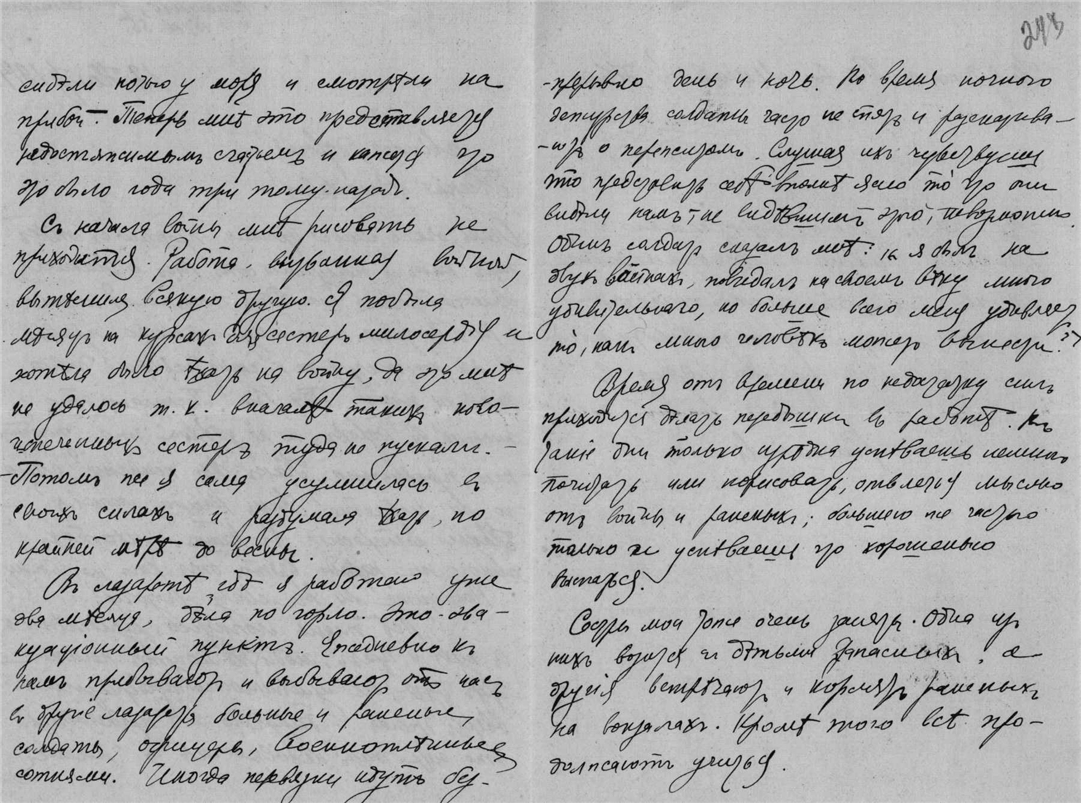 сидѣли ночью у моря и смотрѣли на
прибой. Теперь мнѣ это представляется
недостижимымъ счастьемъ и кажется что
это было года три тому-назадъ.
Съ начала войны мнѣ рисовать не
приходится. Работа, вызванная войной,
вытѣснила всякую другую. Я пробыла
мѣсяцъ на курсахъ для сестеръ милосердія и
хотѣла было ѣхать на войну, да это мнѣ
не удалось т. к. вначалѣ такихъ ново-
испеченныхъ сестеръ туда не пускали. -
Потомъ же я сама усумнилась въ
своихъ силахъ и раздумала ѣхать, по
крайней мѣрѣ до весны.
Въ лазаретѣ гдѣ я работаю уже
два мѣсяца, дѣла по горло. Это-эва-
куаціонный пунктъ. Ежедневно къ
намъ прибываютъ и выбываютъ отъ насъ
въ другіе лазареты больные и раненые,
солдаты, офицеры, военноплѣнные
сотнями. Иногда перевязки идутъ без-
243
-прерывно день и ночь. Во время ночного
дежурства солдаты часто не спятъ и рассказыва-
-ютъ о пережитомъ. Слушая ихъ чувствуешь
что представить себѣ вполнѣ ясно то что они
видѣли намъ, не видѣвшимъ этого, невозможно.
Одинъ солдатъ сказалъ мнѣ: "я былъ на
двухъ войнахъ, повидалъ на своемъ вѣку много
удивительнаго, но больше всего меня удивляетъ
то, какъ много человѣкъ можетъ вынести."
Время отъ времени по недостатку силъ
приходится дѣлать передышки въ работѣ. Въ
такіе дни только изрѣдка успѣваешь немного
почитать или порисовать, отвлечься мыслью
отъ войны и раненыхъ; большею же частью
только и успѣваешь что хорошенько
выспаться.
Сестры мои тоже очень заняты. Одна изъ
нихъ возится съ дѣтьми запасныхъ, а
другія встрѣчаютъ и кормятъ раненыхъ
на вокзалахъ. Кромѣ того всѣ про-
должаютъ учиться.